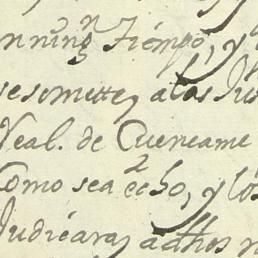 ennning.n Tiempo, y
se somette, a las Jus
Real. de Cuencame
Como sea echo, y los
Judicara, a dhos